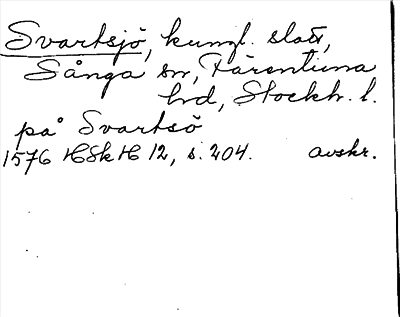 Svartsjö, kungl. slott,
Sånga sn, Färentuna
hd, Stockh. l.
på Svartsö
1576 HSkH 12, s. 204. avskr.